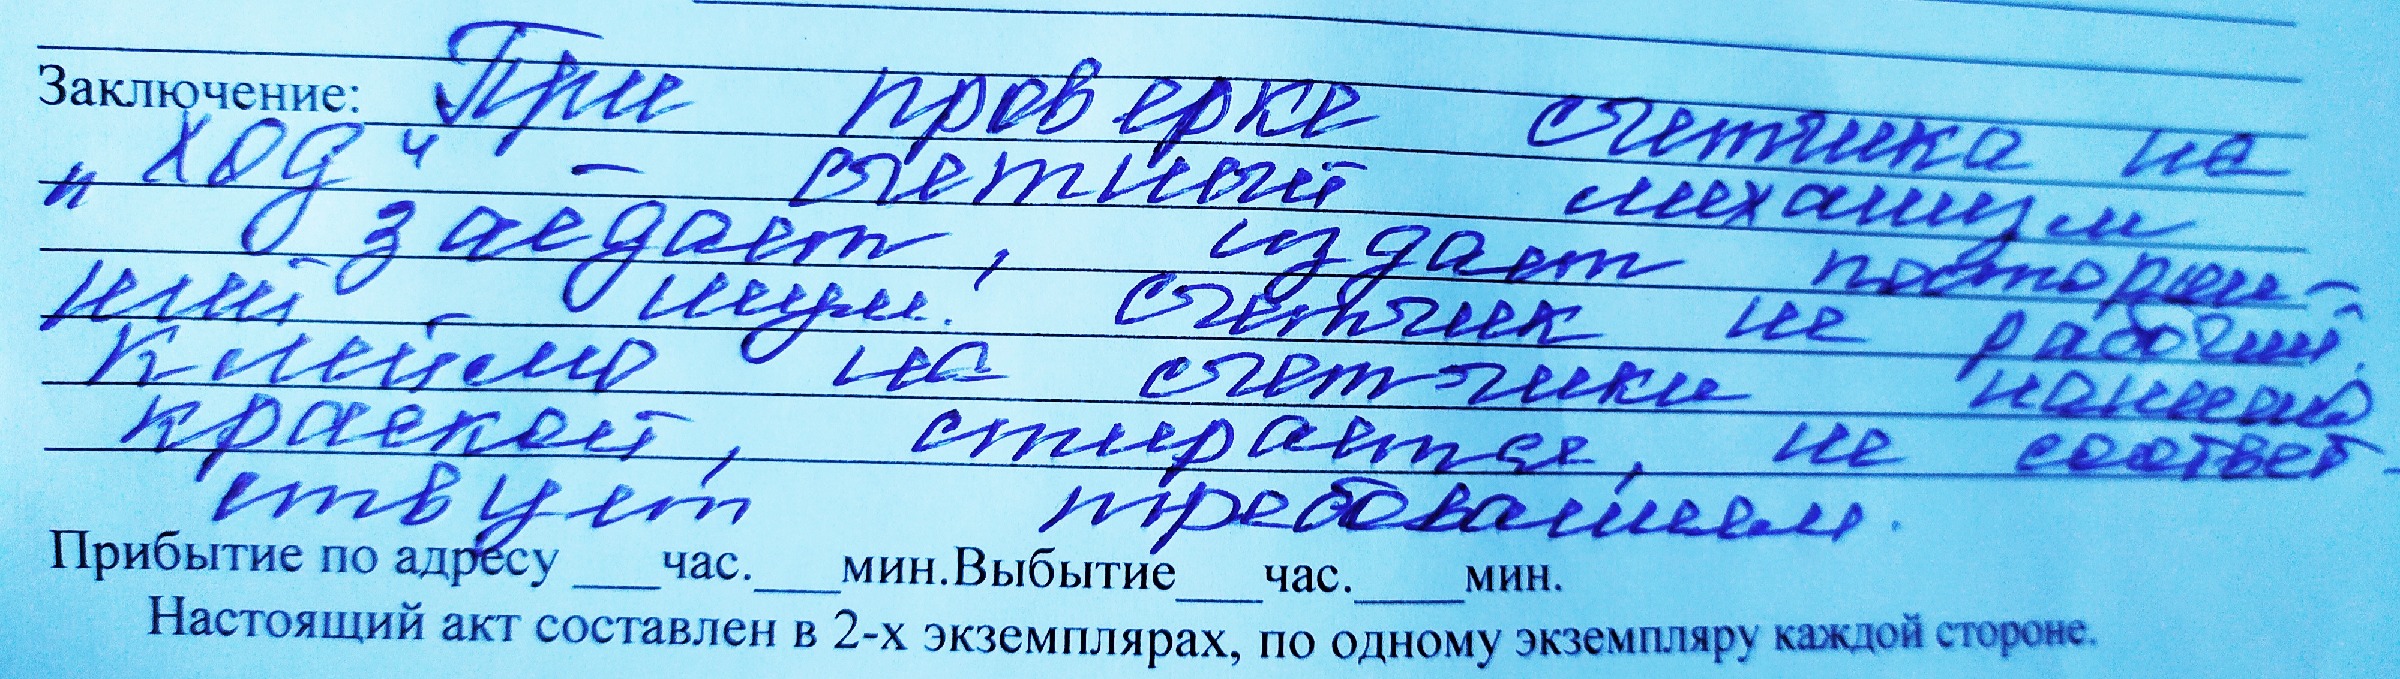 Заключение: При проверке счетчика на
„ход“ – счетный механизм
заедает, издает посторон-
ний шум. Счетчик не рабочий.
Клеймо на счетчики нанесено
краской, стирается, не соответ-
ствует требованием.
Прибытие по адресу ___час.___мин.Выбытие___час.____мин.
Настоящий акт составлен в 2-х экземплярах, по одному экземпляру каждой стороне.